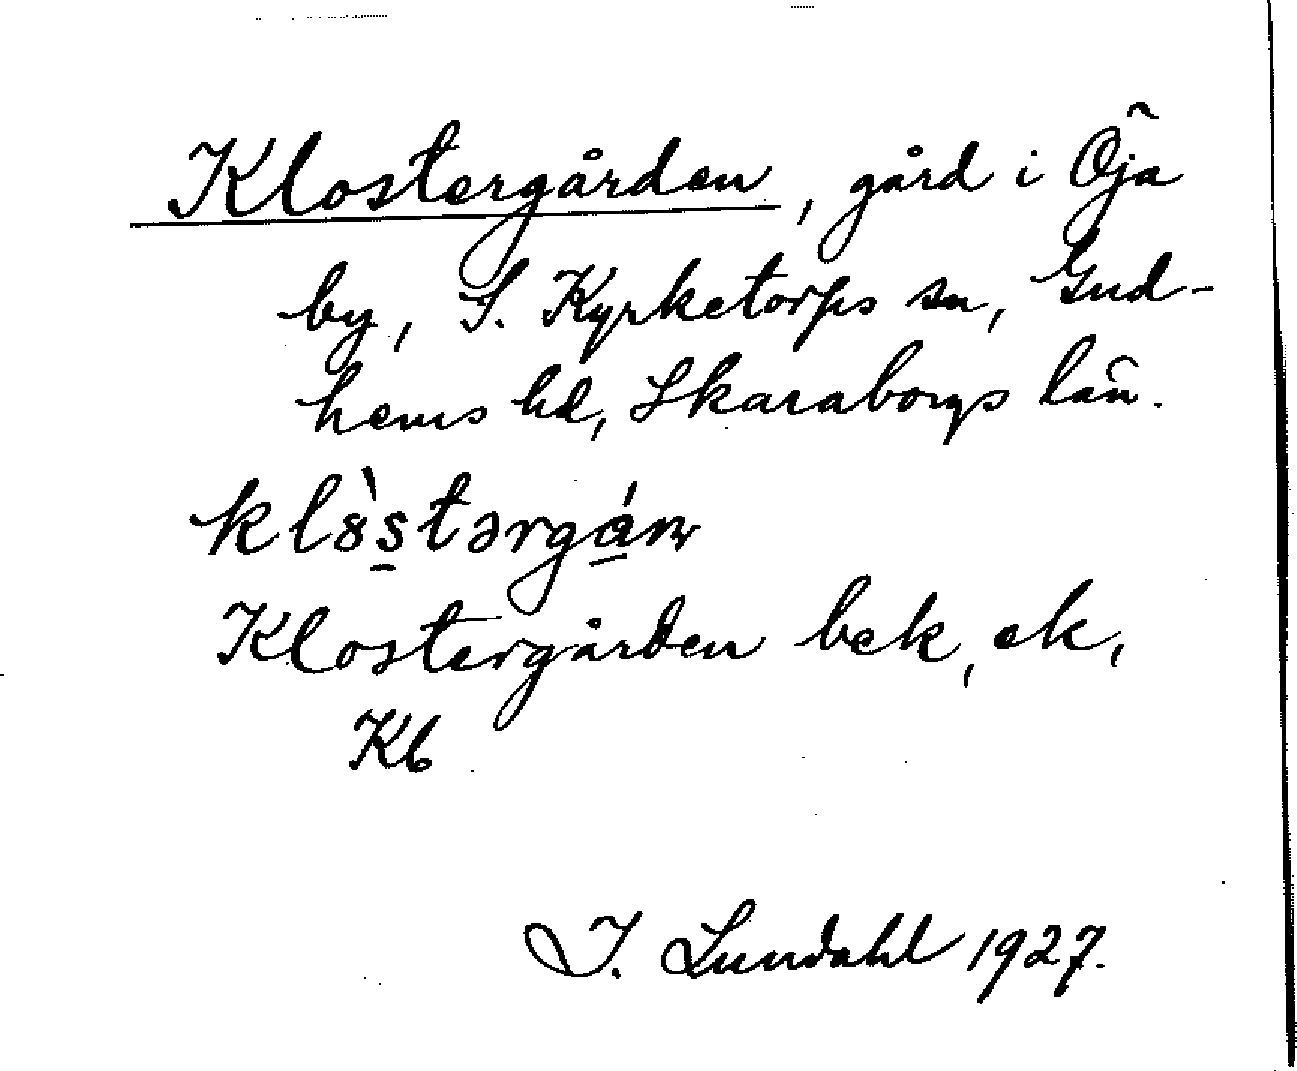 Klostergården, gård i Öja
by, S. Kyrketorps sn, Gud-
hems hd, Skaraborgs län.
Klostergården bek, ek,
Kb
I. Lundahl 1927.